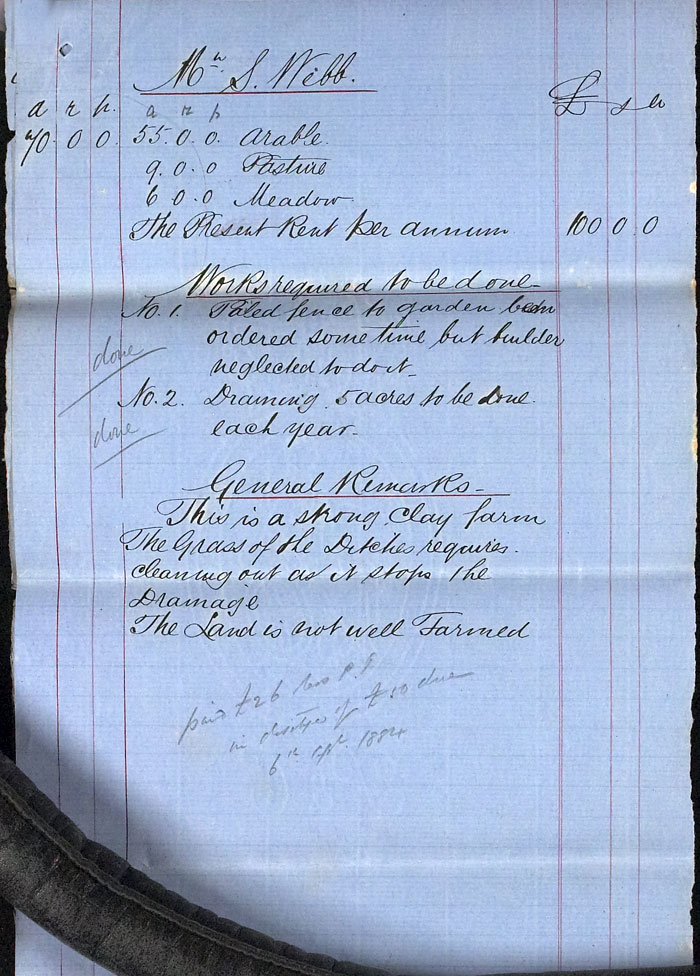 Mr S. Webb.
£ s d
a r p. a r p
70. 0 0. 55. 0. 0. Arable.
9. 0. 0 Pasture
6 0. 0 Meadow
The Present Rent per annum 100 0 0
Works required to be done
No. 1. Paled fence to garden been
ordered some time but builder
neglected to do it
done
No. 2. Draining 5 acres to be done
each year.
done
General Remarks
This is a strong Clay farm
The Grass of the Ditches requires
cleaning out as it stops the
Drainage
The Land is not well Farmed
paid £26 less
in of £50 due
6th 1884